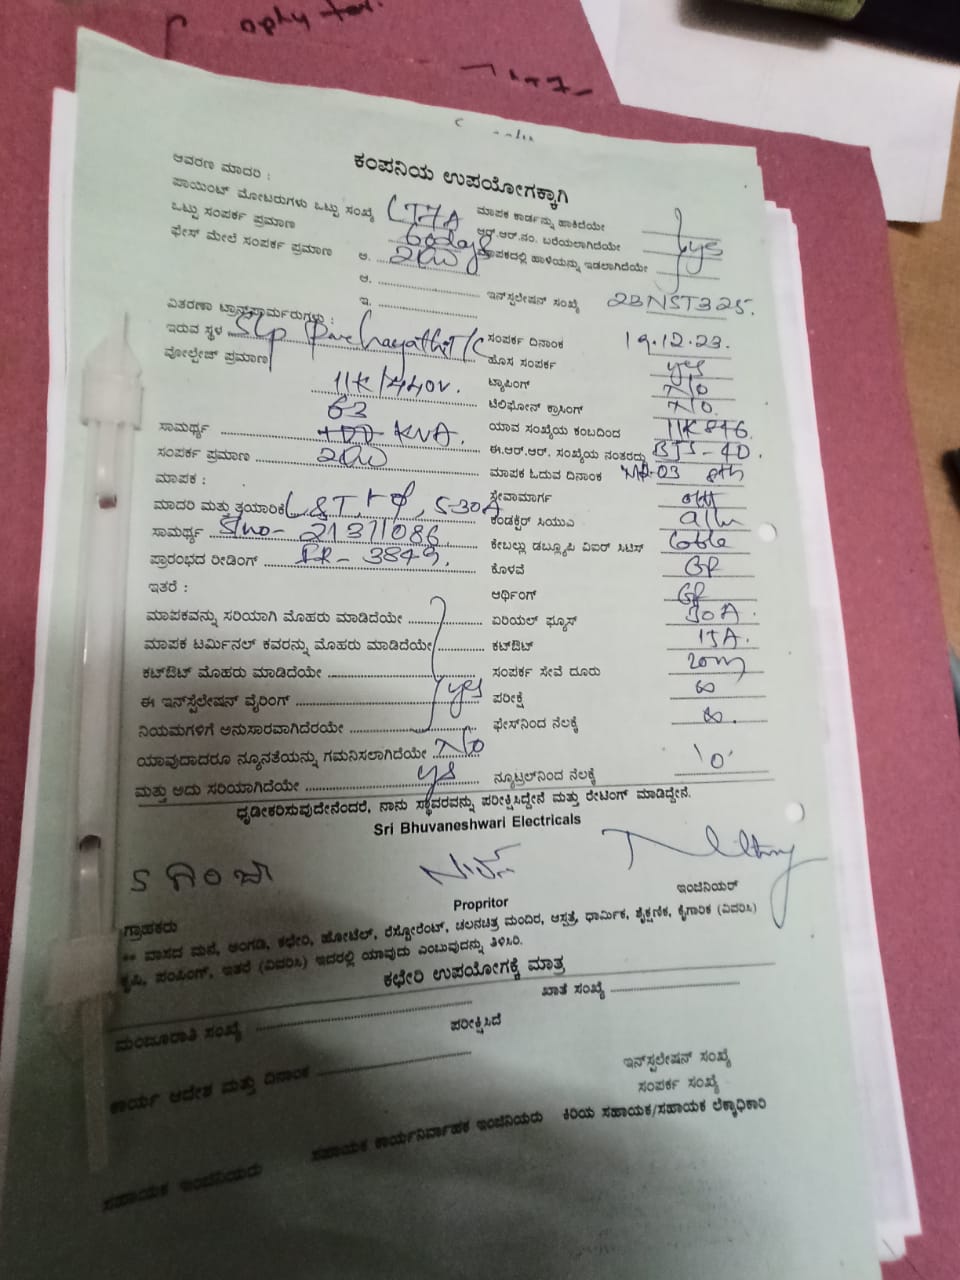 ಕಂಪನಿಯ ಉಪಯೋಗಕ್ಕಾಗಿ
ಆವರಣ ಮಾದರಿ :
ಪಾಯಿಂಟ್ ಮೋಟರುಗಳು ಒಟ್ಟು ಸಂಖ್ಯೆ LT7A ಮಾಪಕ ಕಾರ್ಡನ್ನು ಹಾಕಿದೆಯೇ
ಒಟ್ಟು ಸಂಪರ್ಕ ಪ್ರಮಾಣ 60days ಆರ್.ಆರ್.ನಂ. ಬರೆಯಲಾಗಿದೆಯೇ yes
ಫೇಸ್ ಮೇಲೆ ಸಂಪರ್ಕ ಪ್ರಮಾಣ ಅ. ಮಾಪಕದಲ್ಲಿ ಹಾಳೆಯನ್ನು ಇಡಲಾಗಿದೆಯೇ
ಆ. ಇನ್‌ಸ್ಟಲೇಷನ್ ಸಂಖ್ಯೆ 2BNST325.
ಇ.
ವಿತರಣಾ ಟ್ರಾನ್ಸ್‌ಫಾರ್ಮರುಗಳು :
ಇರುವ ಸ್ಥಳ T/C ಸಂಪರ್ಕ ದಿನಾಂಕ 19.12.23.
ವೋಲ್ಟೇಜ್ ಪ್ರಮಾಣ 11K/440V. ಹೊಸ ಸಂಪರ್ಕ yes
ಟ್ಯಾಪಿಂಗ್ No
63 ಟೆಲಿಫೋನ್ ಕ್ರಾಸಿಂಗ್ No.
ಸಾಮರ್ಥ್ಯ 100 KVA. ಯಾವ ಸಂಖ್ಯೆಯ ಕಂಬದಿಂದ
ಸಂಪರ್ಕ ಪ್ರಮಾಣ ಈ.ಆರ್.ಆರ್. ಸಂಖ್ಯೆಯ ನಂತರದ್ದು BJS-40.
ಮಾಪಕ : ಮಾಪಕ ಓದುವ ದಿನಾಂಕ 8th
ಮಾದರಿ ಮತ್ತು ತಯಾರಿಕೆ L&T, 1Φ, 5-30A ಸೇವಾಮಾರ್ಗ OH
ಸಾಮರ್ಥ್ಯ Slno- 21371086 ಕಂಡಕ್ಟರ್ ಸಿಯುಎ
ಪ್ರಾರಂಭದ ರೀಡಿಂಗ್ IR- 3849. ಕೇಬಲ್ಲು ಡಬ್ಲ್ಯೂಪಿ ವಿಐಆರ್ ಸಿಟಿಸ್ Cable
ಇತರೆ : ಕೊಳವೆ GP
ಆರ್ಥಿಂಗ್ GP
ಮಾಪಕವನ್ನು ಸರಿಯಾಗಿ ಮೊಹರು ಮಾಡಿದೆಯೇ ಏರಿಯಲ್ ಫ್ಯೂಸ್ 30A.
ಮಾಪಕ ಟರ್ಮಿನಲ್ ಕವರನ್ನು ಮೊಹರು ಮಾಡಿದೆಯೇ ಕಟ್‌ಔಟ್ 15A.
ಕಟ್‌ಔಟ್ ಮೊಹರು ಮಾಡಿದೆಯೇ ಸಂಪರ್ಕ ಸೇವೆ ದೂರು 20m
ಈ ಇನ್‌ಸ್ಟೆಲೇಷನ್ ವೈರಿಂಗ್ yes ಪರೀಕ್ಷೆ ∞
ನಿಯಮಗಳಿಗೆ ಅನುಸಾರವಾಗಿದೆರಯೇ ಫೇಸ್‌ನಿಂದ ನೆಲಕ್ಕೆ ∞.
ಯಾವುದಾದರೂ ನ್ಯೂನತೆಯನ್ನು ಗಮನಿಸಲಾಗಿದೆಯೇ No
ಮತ್ತು ಅದು ಸರಿಯಾಗಿದೆಯೇ yes ನ್ಯೂಟ್ರಲ್‌ನಿಂದ ನೆಲಕ್ಕೆ '0'
ಧೃಡೀಕರಿಸುವುದೇನೆಂದರೆ, ನಾನು ಸ್ಥಾವರವನ್ನು ಪರೀಕ್ಷಿಸಿದ್ದೇನೆ ಮತ್ತು ರೇಟಿಂಗ್ ಮಾಡಿದ್ದೇನೆ.
Sri Bhuvaneshwari Electricals
Propritor
ಇಂಜಿನಿಯರ್
ಗ್ರಾಹಕರು
** ವಾಸದ ಮನೆ, ಅಂಗಡಿ, ಕಛೇರಿ, ಹೋಟೆಲ್, ರೆಸ್ಟೋರೆಂಟ್, ಚಲನಚಿತ್ರ ಮಂದಿರ, ಆಸ್ಪತ್ರೆ, ಧಾರ್ಮಿಕ, ಶೈಕ್ಷಣಿಕ, ಕೈಗಾರಿಕ (ವಿವರಿಸಿ)
ಕೃಷಿ, ಪಂಪಿಂಗ್, ಇತರೆ (ವಿವರಿಸಿ) ಇದರಲ್ಲಿ ಯಾವುದು ಎಂಬುವುದನ್ನು ತಿಳಿಸಿರಿ.
ಕಛೇರಿ ಉಪಯೋಗಕ್ಕೆ ಮಾತ್ರ
ಮಂಜೂರಾತಿ ಸಂಖ್ಯೆ ಖಾತೆ ಸಂಖ್ಯೆ
ಪರೀಕ್ಷಿಸಿದೆ
ಕಾರ್ಯ ಆದೇಶ ಮತ್ತು ದಿನಾಂಕ
ಇನ್‌ಸ್ಟಲೇಷನ್ ಸಂಖ್ಯೆ
ಸಂಪರ್ಕ ಸಂಖ್ಯೆ
ಸಹಾಯಕ ಇಂಜಿನಿಯರು ಸಹಾಯಕ ಕಾರ್ಯನಿರ್ವಾಹಕ ಇಂಜಿನಿಯರು ಕಿರಿಯ ಸಹಾಯಕ/ಸಹಾಯಕ ಲೆಕ್ಕಾಧಿಕಾರಿ